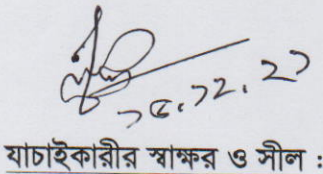 ১৫.১২.২১
যাচাইকারীর স্বাক্ষর ও সীল :